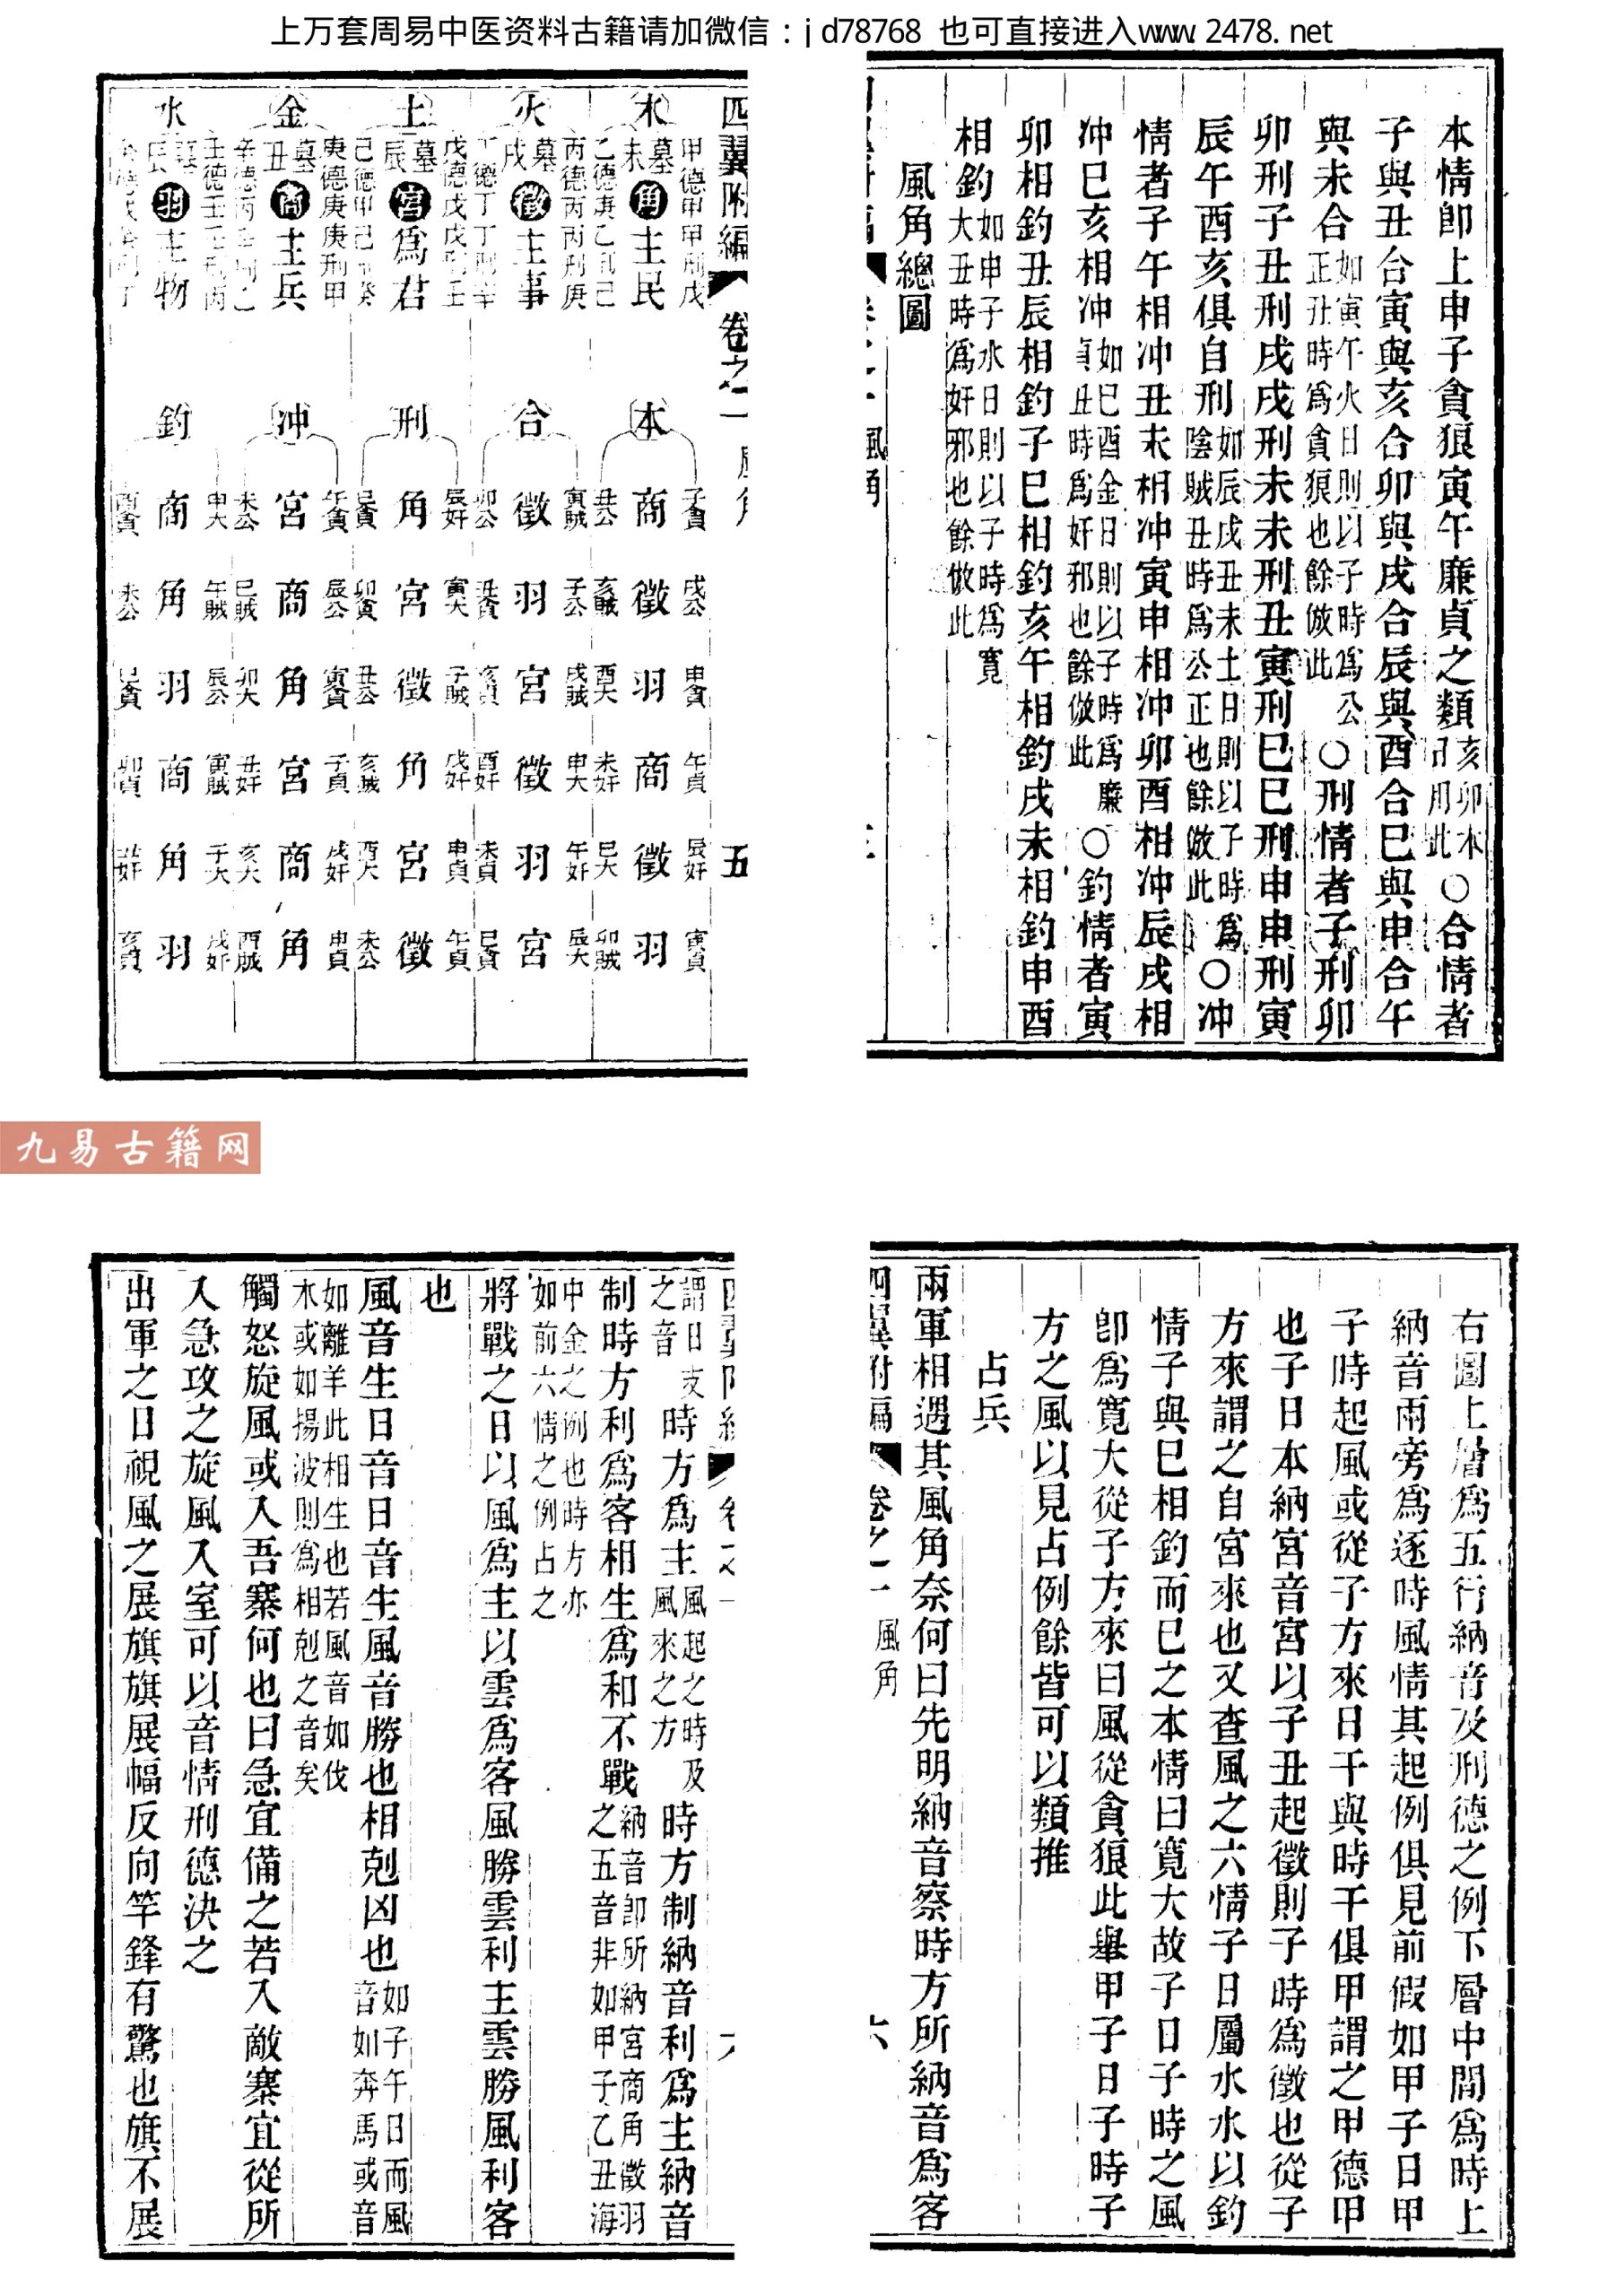 上万套周易中医资料古籍请加微信：jd78768 也可直接进入www.2478.net
本情即上申子貪狼寅午廉貞之類亥卯本日用此○合情者
子與丑合寅與亥合卯與戌合辰與酉合巳與申合午
與未合如寅午火日則以子時為公正丑時為貪狼也餘倣此○刑情者子刑卯
卯刑子丑刑戌戌刑未未刑丑寅刑巳巳刑申申刑寅
辰午酉亥俱自刑如辰戌丑未土日則以子時為陰賊丑時為公正也餘倣此○冲
情者子午相冲丑未相冲寅申相冲卯酉相冲辰戌相
冲巳亥相冲如巳酉金日則以子時為廉貞丑時為奸邪也餘倣此○釣情者寅
卯相釣丑辰相釣子巳相釣亥午相釣戌未相釣申酉
相釣如申子水日則以子時為寬大丑時為奸邪也餘倣此
風角總圖
風角
四翼附編 卷之一
五
木 墓未 角主民 甲德甲甲刑戊
火 墓戌 徵主事 丙德丙丙刑庚
土 墓辰 宮為君
金 墓丑 商主兵 庚德庚庚刑甲
水 羽主物
本 合 刑 冲 釣
子貪 商 丑公 寅賊 徵 卯公 辰奸 角 巳貪 午貪 宮 未公 申大 商 酉貪
戌公 徵 亥賊 子公 羽 丑貪 寅大 宮 卯貪 辰公 商 巳賊 午賊 角 未公
申貪 羽 酉大 戌賊 宮 亥貞 子賊 徵 丑公 寅貪 角 卯大 辰公 羽 巳貪
午貞 商 未奸 申大 徵 酉奸 戌奸 角 亥賊 子貞 宮 丑奸 寅賊 商 卯貞
辰奸 徵 巳大 午奸 羽 未貞 申貞 宮 酉大 戌奸 商 亥大 子大 角 丑奸
寅貞 羽 卯賊 辰大 宮 巳貪 午貞 徵 未公 申貞 角 酉賊 戌奸 羽 亥貞
九易古籍网
右圖上層為五行納音及刑德之例下層中間為時上
納音兩旁為逐時風情其起例俱見前假如甲子日甲
子時起風或從子方來日干與時干俱甲謂之甲德甲
也子日本納宮音宮以子丑起徵則子時為徵也從子
方來謂之自宮來也又查風之六情子日屬水水以釣
情子與巳相釣而巳之本情曰寬大故子日子時之風
即為寬大從子方來曰風從貪狼此舉甲子日子時子
方之風以見占例餘皆可以類推
占兵
兩軍相遇其風角奈何曰先明納音察時方所納音為客
四翼附編 卷之一 風角
六
謂日支之音時方為主風起之時及風來之方時方制納音利為主納音
制時方利為客相生為和不戰納音即所納宮商角徵羽之五音非如甲子乙丑海
中金之例也時方亦如前六情之例占之
將戰之日以風為主以雲為客風勝雲利主雲勝風利客
也
風音生日音日音生風音勝也相剋凶也如子午日而風音如奔馬或音
如離羊此相生也若風音如伐木或如揚波則為相剋之音矣
觸怒旋風或入吾寨何也曰急宜備之若入敵寨宜從所
入急攻之旋風入室可以音情刑德決之
出軍之日視風之展旗旗展幅反向竿鋒有驚也旗不展